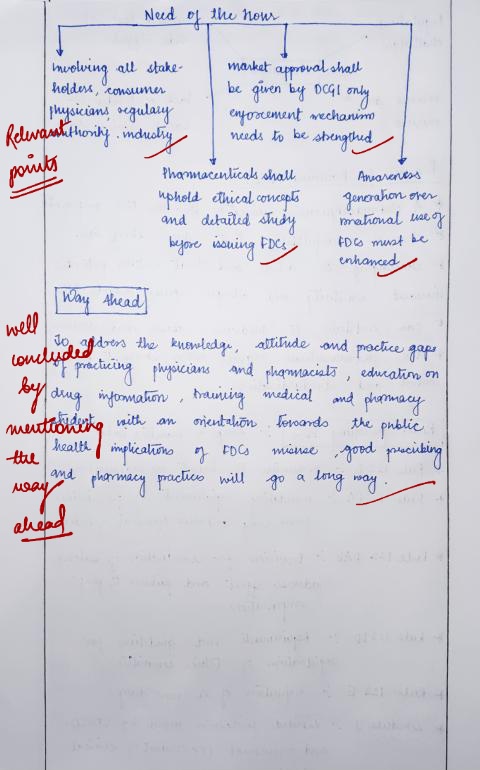 Need of the Hour
involving all stake-
holders, consumer
physicians, regulary
authority. industry
market approval shall
be given by DCGI only
enforcement mechanism
needs to be strengthed
Relevant
points
Pharmaceuticals shall
uphold ethical concepts
and detailed study
before issuing FDCs
Awareness
generation over
irrational use of
FDCs must be
enhanced
Way Ahead
To address the knowledge, attitude and practice gaps
of practicing physicians and pharmacists, education on
drug information, training medical and pharmacy
student with an orientation towards the public
health implications of FDCs misuse, good prescribing
and pharmacy practices will go a long way.
well
concluded
by
mentioning
the
way
ahead